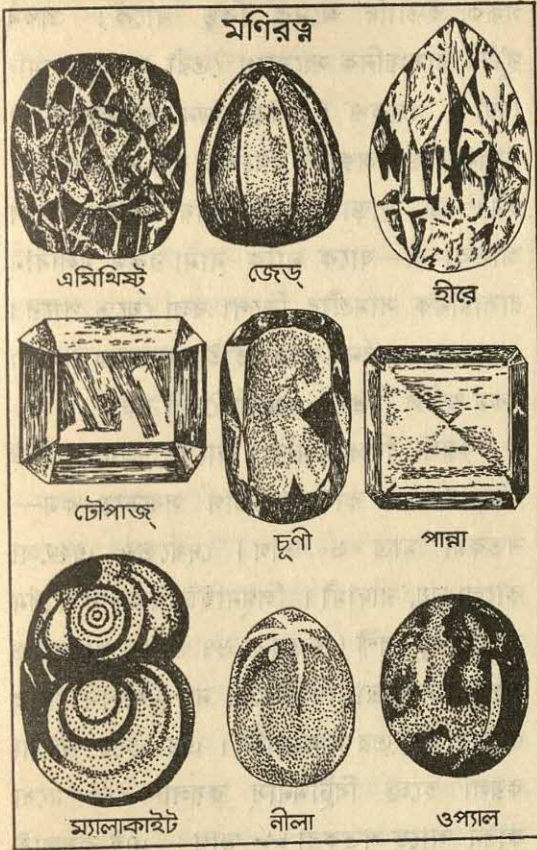 মণিরত্ন
এমিথিষ্ট্ জেড্ হীরে
টোপাজ্ চূণী পান্না
ম্যালাকাইট নীলা ওপ্যাল